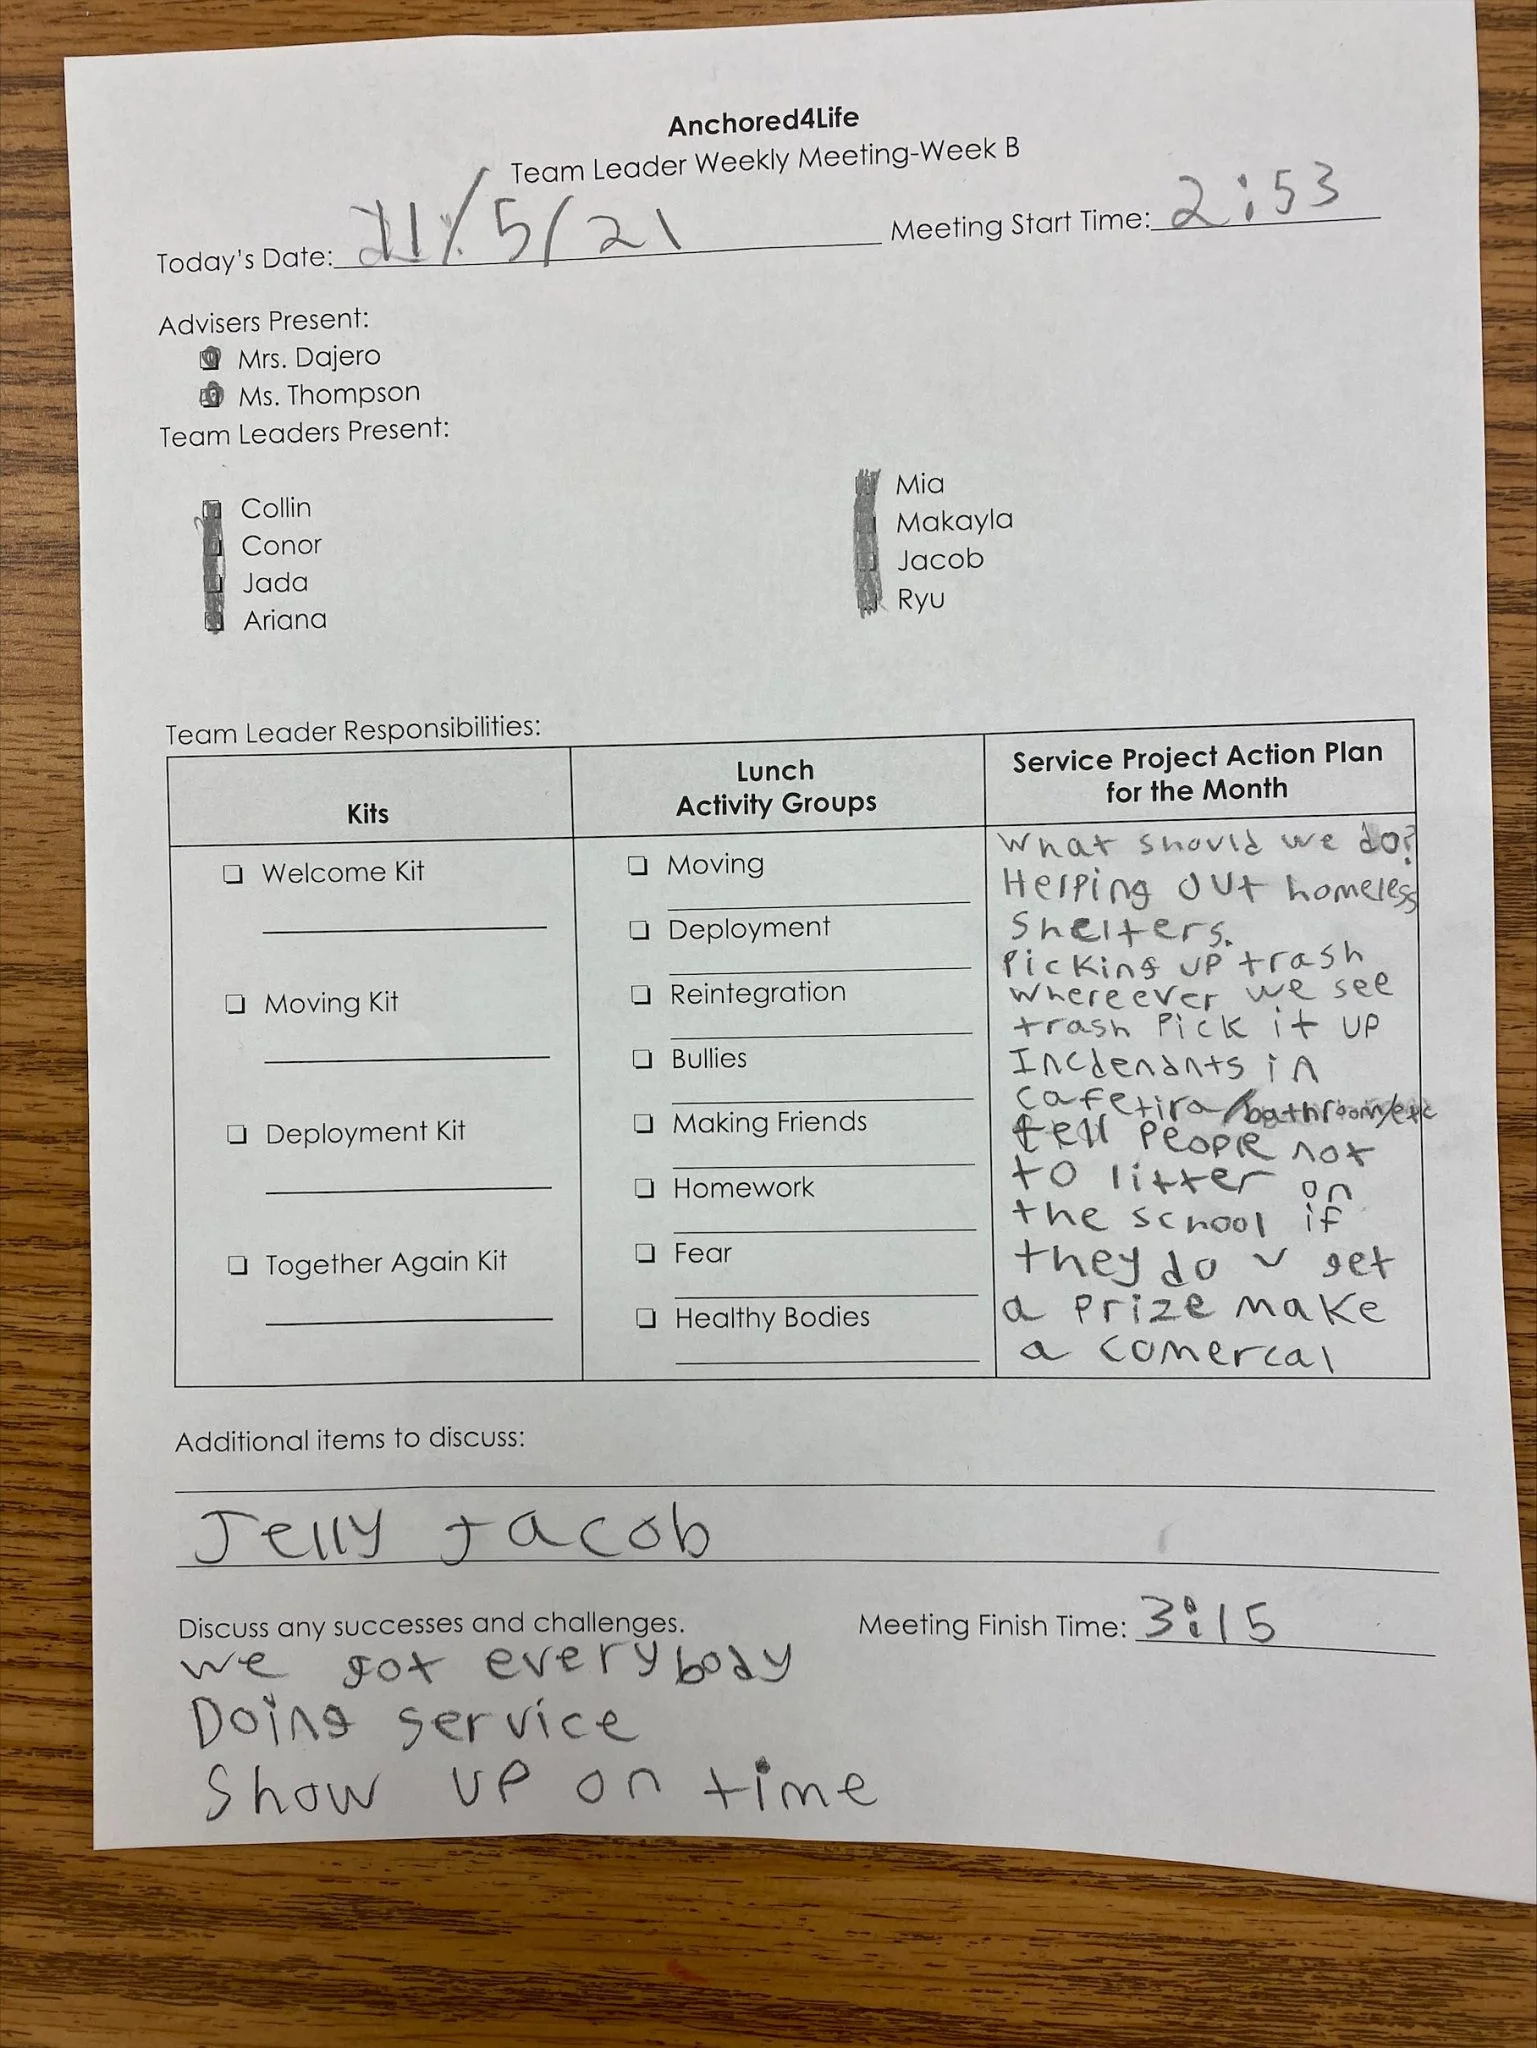 Anchored4Life
Team Leader Weekly Meeting-Week B
Today's Date: 11/5/21 Meeting Start Time: 2:53
Advisers Present:
Mrs. Dajero
Ms. Thompson
Team Leaders Present:
Collin
Conor
Jada
Ariana
Mia
Makayla
Jacob
Ryu
Team Leader Responsibilities:
Kits
Welcome Kit
Moving Kit
Deployment Kit
Together Again Kit
Lunch
Activity Groups
Moving
Deployment
Reintegration
Bullies
Making Friends
Homework
Fear
Healthy Bodies
Service Project Action Plan
for the Month
What should we do?
Helping out homeless
shelters.
Picking up trash
whereever we see
trash pick it up
Incdenants in
cafetira/bathroom/etc
tell people not
to litter on
the school if
they do u get
a prize make
a comercal
Additional items to discuss:
Jelly Jacob
Discuss any successes and challenges. Meeting Finish Time: 3:15
we got everybody
Doing service
Show up on time